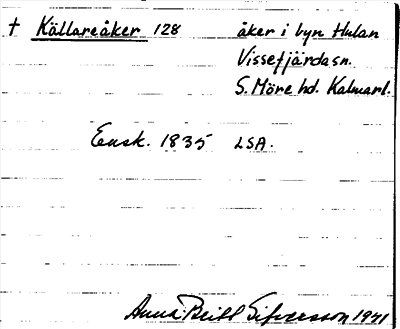 † Källareåker 128 åker i byn Hulan
Vissefjärda sn.
S. Möre hd. Kalmarl.
Ensk. 1835 LSA.
Anna Britt Sifversson 1941